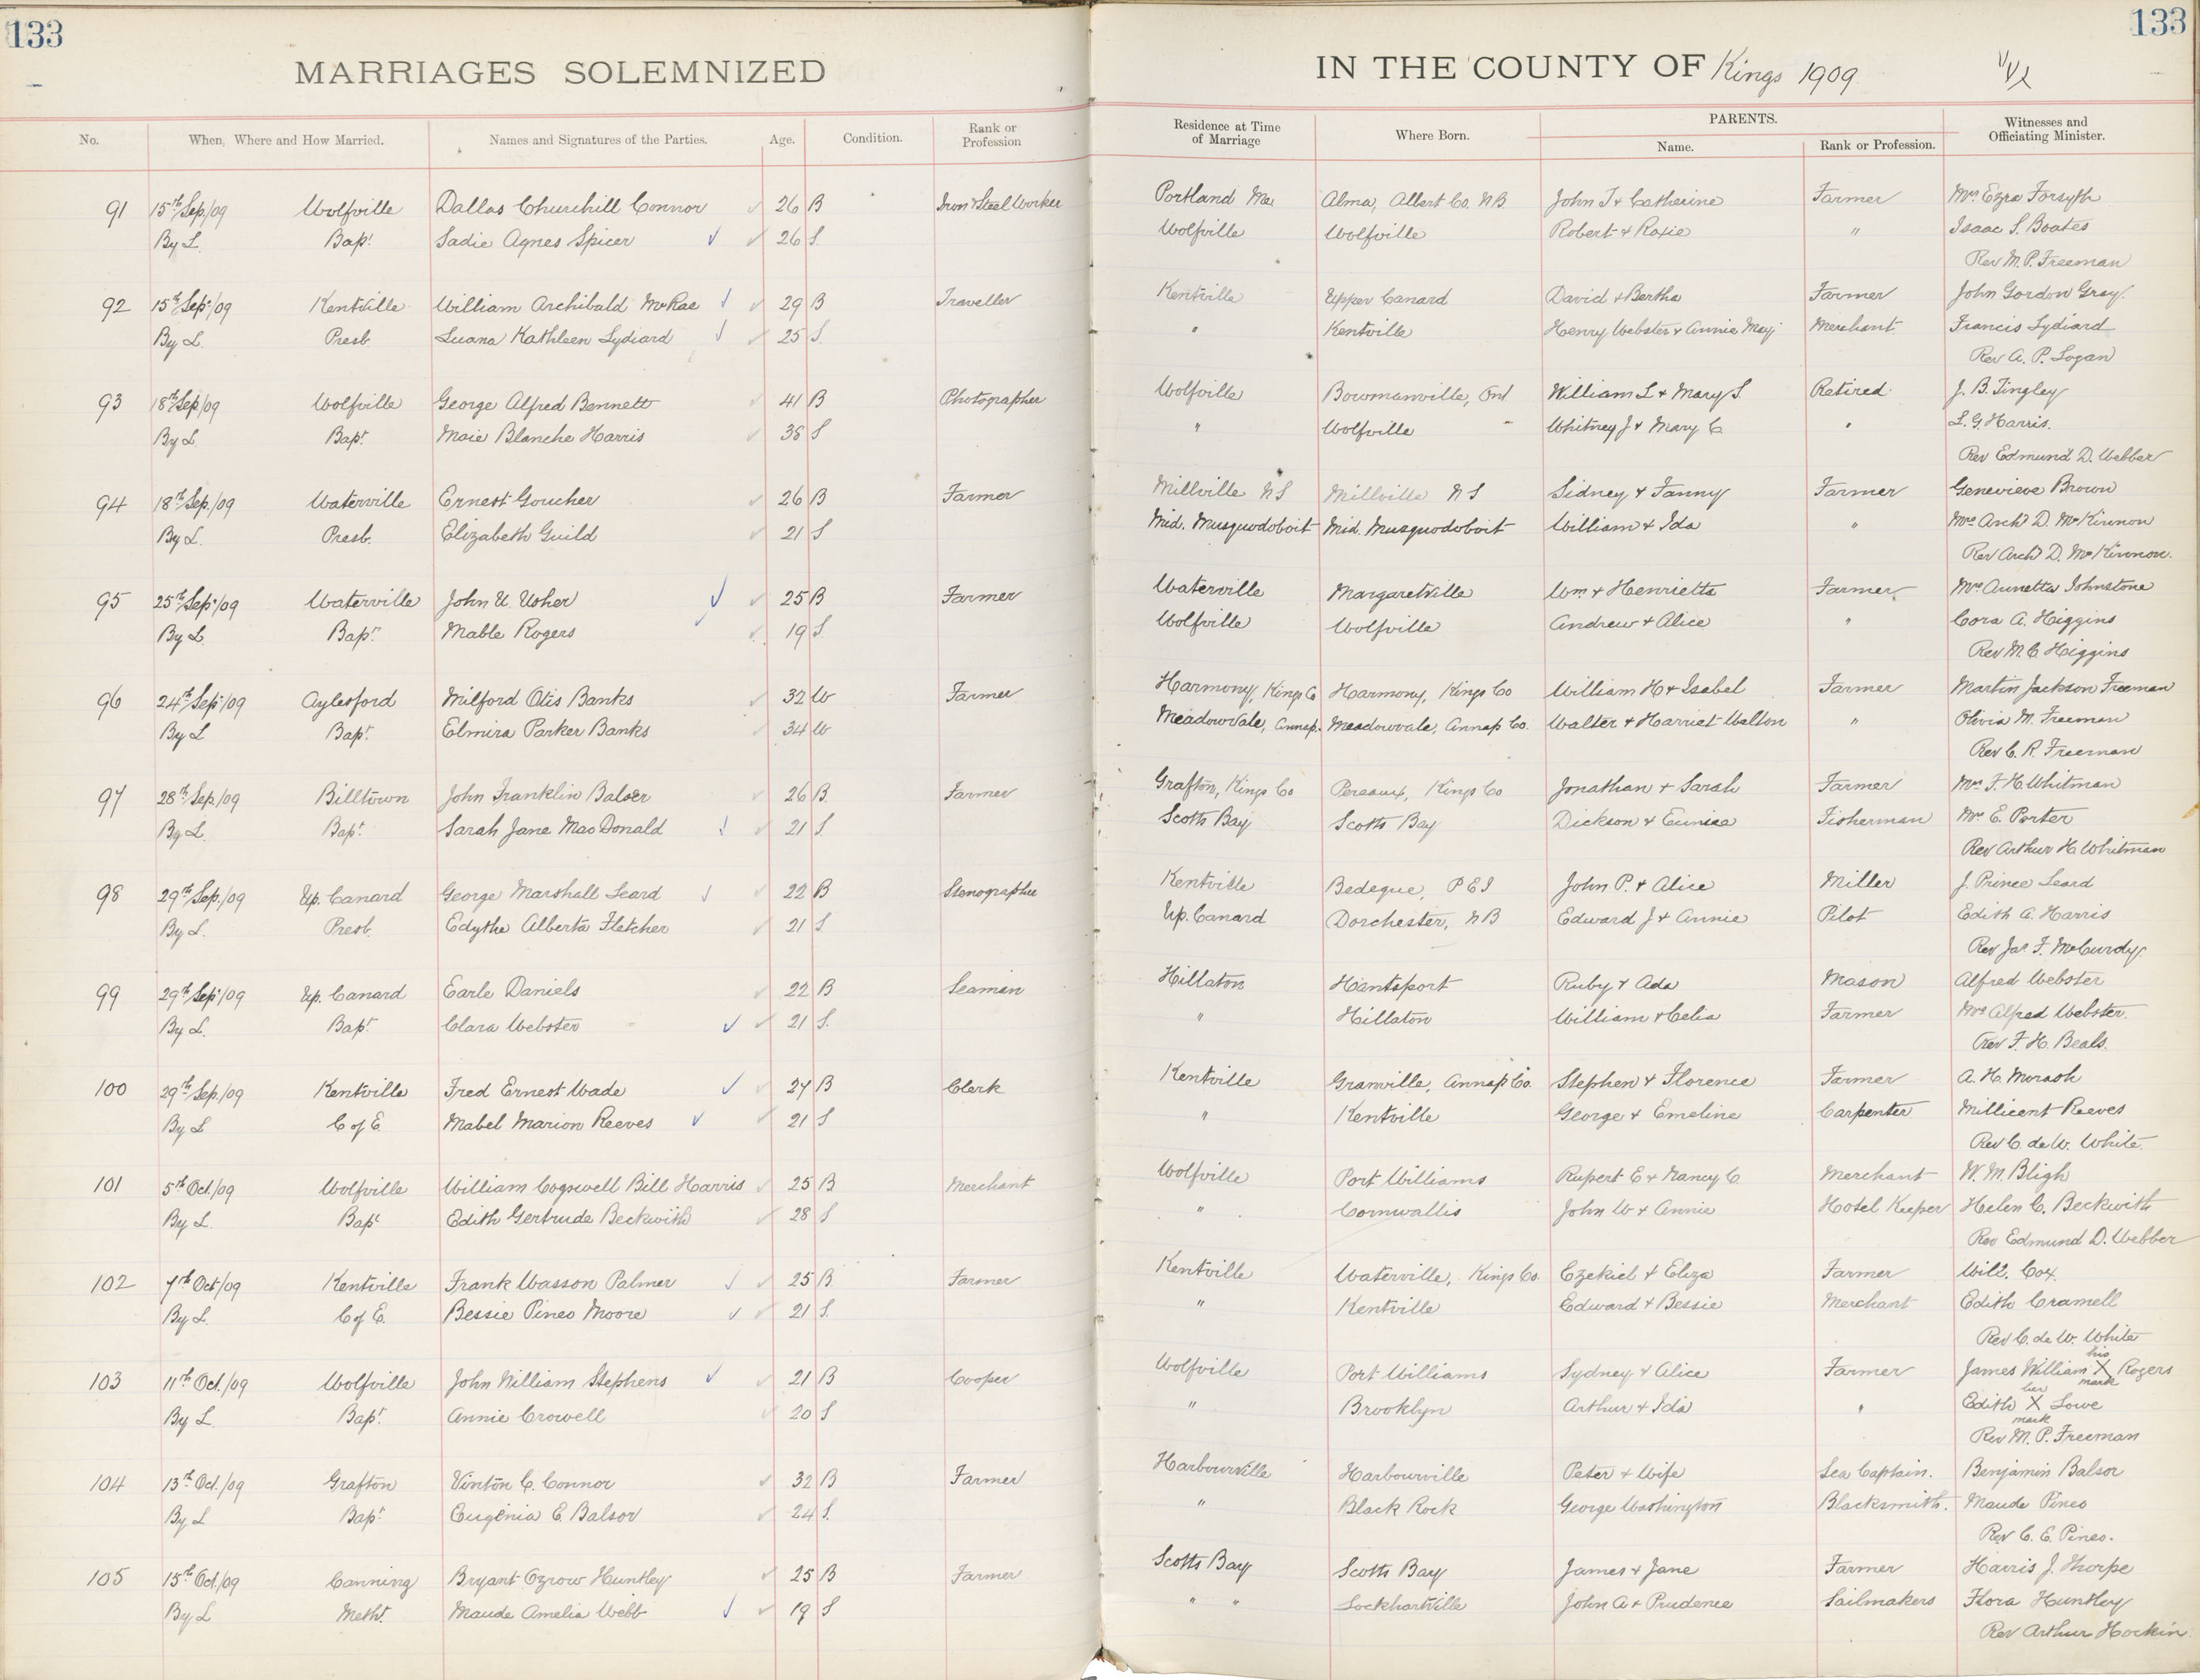 133
133
MARRIAGES SOLEMNIZED
IN THE COUNTY OF Kings 1909
No. When, Where and How Married. Names and Signatures of the Parties. Age. Condition. Rank or Profession Residence at Time of Marriage Where Born. PARENTS. Name. Rank or Profession. Witnesses and Officiating Minister.
91 15th Sep./09 Wolfville Dallas Churchill Connor 26 B Iron & Steel Worker Portland Me Alma, Albert Co. NB John T & Catherine Farmer Mrs Ezra Forsyth
By L. Bapt Sadie Agnes Spicer 26 S. Wolfville Wolfville Robert & Roxie " Isaac S. Boates
Rev M. P. Freeman
92 15th Sep./09 Kentville William Archibald McRae 29 B Traveller Kentville Upper Canard David & Bertha Farmer John Gordon Gray.
By L. Presb. Luana Kathleen Lydiard 25 S. " Kentville Henry Webster & Annie May Merchant Francis Lydiard
Rev A. P. Logan
93 18th Sep/09 Wolfville George Alfred Bennett 41 B Photographer Wolfville Bowmanville, Ont William L & Mary S Retired J. B. Tingley
By L Bapt. Maie Blanche Harris 38 S " Wolfville Whitney J & Mary C " L. G. Harris.
Rev Edmund D. Webber
94 18th Sep./09 Waterville Ernest Goucher 26 B Farmer Millville NS Millville NS Sidney & Fanny Farmer Genevieve Brown
By L. Presb. Elizabeth Guild 21 S Mid. Musquodoboit Mid. Musquodoboit William & Ida " Mrs Archd D. McKinnon
Rev Archd D. McKinnon.
95 25th Sep./09 Waterville John U. Usher 25 B Farmer Waterville Margaretville Wm & Henrietta Farmer Mrs Annetta Johnstone
By L. Bapt. Mable Rogers 19 S. Wolfville Wolfville Andrew & Alice " Cora A. Higgins
Rev M. C. Higgins
96 24th Sep./09 Aylesford Milford Otis Banks 32 W Farmer Harmony, Kings Co Harmony, Kings Co William H & Isabel Farmer Martin Jackson Freeman
By L Bapt. Elmira Parker Banks 34 W Meadowvale, Annap. Meadowvale, Annap Co. Walter & Harriet Walton " Olivia M. Freeman
Rev C. R. Freeman
97 28th Sep/09 Billtown John Franklin Balser 26 B. Farmer Grafton, Kings Co Pereaux, Kings Co Jonathan & Sarah Farmer Mrs F. H. Whitman
By L. Bapt. Sarah Jane MacDonald 21 S. Scotts Bay Scotts Bay Dickson & Eunice Fisherman Mrs E. Porter
Rev Arthur H. Whitman
98 29th Sep./09 Up. Canard George Marshall Leard 22 B Stenographer Kentville Bedeque, PEI John P. & Alice Miller J. Prince Leard
By L. Presb. Edythe Alberta Fletcher 21 S Up. Canard Dorchester, NB Edward J & Annie Pilot Edith A. Harris
Rev Jas F. McCurdy.
99 29th Sep./09 Up. Canard Earle Daniels 22 B Seaman Hillaton Hantsport Ruby & Ada Mason Alfred Webster
By L. Bapt. Clara Webster 21 S. " Hillaton William & Celia Farmer Mrs Alfred Webster.
Rev F. H. Beals.
100 29th Sep./09 Kentville Fred Ernest Wade 27 B Clerk Kentville Granville, Annap Co. Stephen & Florence Farmer A. H. Morash
By L C of E. Mabel Marion Reeves 21 S " Kentville George & Emeline Carpenter Millicent Reeves
Rev C de W. White.
101 5th Oct./09 Wolfville William Cogswell Bill Harris 25 B Merchant Wolfville Port Williams Rupert E & Nancy C. Merchant W. M. Bligh
By L. Bapt Edith Gertrude Beckwith 28 S " Cornwallis John W & Annie Hotel Keeper Helen C. Beckwith
Rev Edmund D. Webber
102 7th Oct/09 Kentville Frank Wasson Palmer 25 B Farmer Kentville Waterville, Kings Co. Ezekiel & Eliza Farmer Will. Cox.
By L. C of E. Bessie Pineo Moore 21 S. " Kentville Edward & Bessie Merchant Edith Cramell
Rev C. de W. White
103 11th Oct./09 Wolfville John William Stephens 21 B Cooper Wolfville Port Williams Sydney & Alice Farmer James William his X mark Rogers
By L. Bapt. Annie Crowell 20 S " Brooklyn Arthur & Ida " Edith her X mark Lowe
Rev M. P. Freeman
104 13th Oct./09 Grafton Vinton C. Connor 32 B Farmer Harbourville Harbourville Peter & Wife Sea Captain. Benjamin Balsor
By L Bapt. Eugenia E. Balsor 24 S. " Black Rock George Washington Blacksmith. Maude Pineo
Rev C. E. Pineo.
105 15th Oct./09 Canning Bryant Ozrow Huntley 25 B Farmer Scotts Bay Scotts Bay James & Jane Farmer Harris J. Thorpe
By L Metht. Maude Amelia Webb 19 S " " Lockhartville John A & Prudence Sailmakers Flora Huntley
Rev Arthur Hockin.